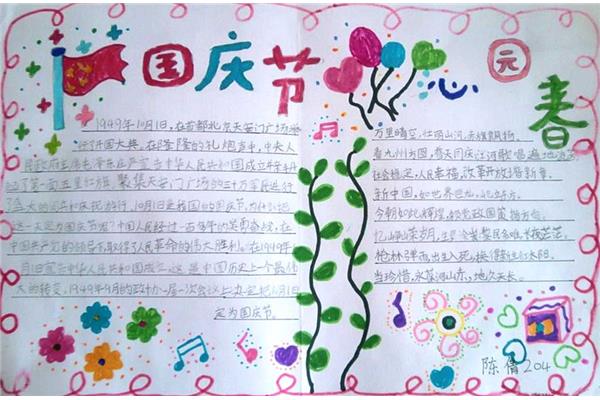 国庆节
心园春
1949年10月1日,在首都北京天安门广场举
行了开国大典,在隆隆的礼炮声中,中央人
民政府主席毛泽东庄严宣告中华人民共和国成立并亲手升
起了第一面五星红旗。聚集天安门广场的三十万军民进行
了盛大的阅兵和庆祝游行。10月1日是我国的国庆节。为什么把
这一天定为国庆节呢?中国人民经过一百多年的英勇奋战,在
中国共产党的领导下,取得了人民革命的伟大胜利。在1949年
10月1日宣告中华人民共和国成立。这是中国历史上一个最伟
大的转变。1949年9月的政协一届一次会议上决定把10月1日
定为国庆节。
万里晴空,壮丽山河,赤旗飘扬。
看九州方圆,普天同庆;江河歌唱,遍地
社会稳定,人民幸福,改革开放谱新章。
新中国,如世界巨龙,屹立东方。
今朝如此辉煌,
忆峥嵘岁月,
枪林弹雨,出生入死,换得
当珍惜,永葆河山赤,地久天长。
陈倩204